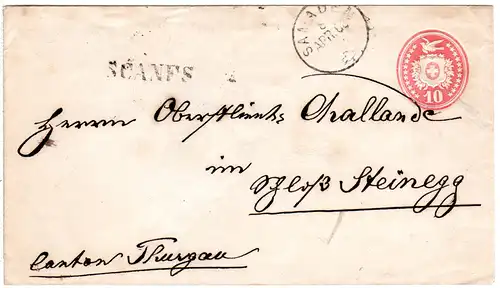 SAMADEN
SCANFS
10
Herrn Oberstlieut: Challande
im
Schloß Steinegg
Canton Thurgau